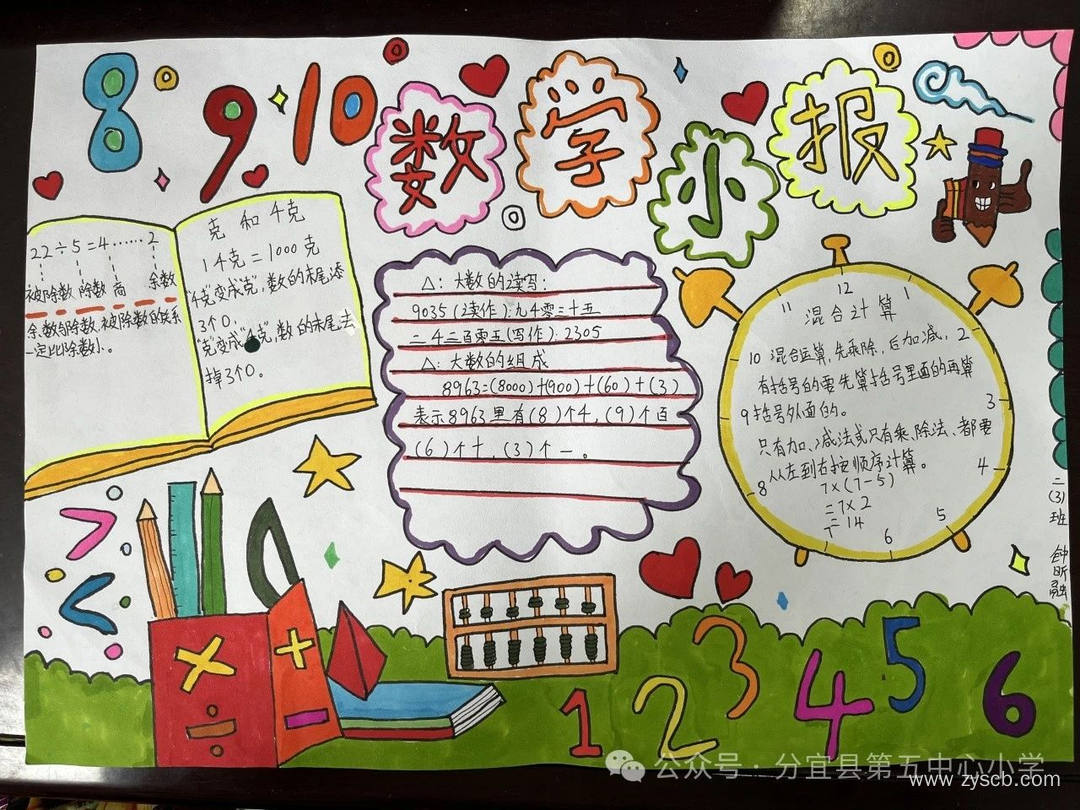 8 9 10
数学小报
22÷5=4……2
被除数 除数 商 余数
余数与除数、被除数的关系
一定比除数小。
克 和 千克
1千克=1000克
"千克"变成"克",数的末尾添
3个0。
"克"变成"千克",数的末尾去
掉3个0。
△:大数的读写:
9035(读作):九千零三十五
二千三百零五(写作):2305
△:大数的组成
8963=(8000)+(900)+(60)+(3)
表示8963里有(8)个千,(9)个百
(6)个十,(3)个一。
12
11
1
混合计算
10
混合运算,先乘除,后加减,
2
有括号的要先算括号里面的再算
9
括号外面的。
3
只有加、减法或只有乘、除法、都要
从左到右按顺序计算。
4
8
7×(7-5)
=7×2
=14
7
5
6
二(3)班 钟昕融
> <
× + ÷ -
1 2 3 4 5 6
公众号·分宜县第五中心小学
www.zyscb.com